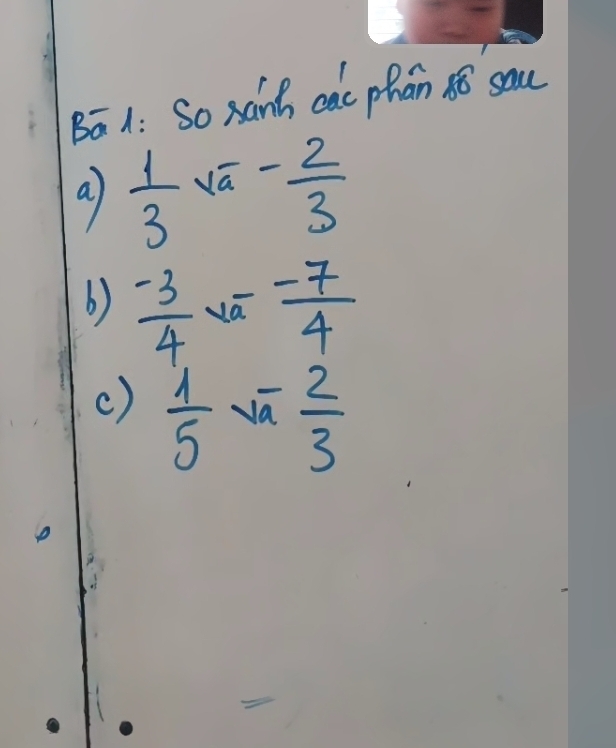 Bā 1: So sánh các phân số sau
a) 1/3 và - 2/3
b) -3/4 và -7/4
c) 1/5 và 2/3